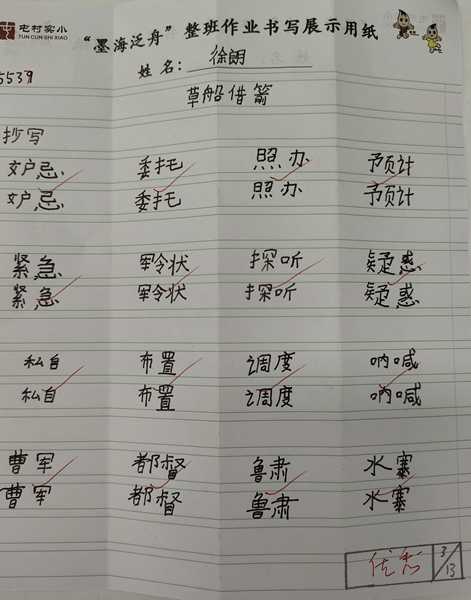 屯村实小
TUN CUN SHI XIAO
“墨海泛舟”整班作业书写展示用纸
姓名：徐朗
5539
草船借箭
抄写
妒忌 委托 照办 预计
妒忌 委托 照办 预计
紧急 军令状 探听 疑惑
紧急 军令状 探听 疑惑
私自 布置 调度 呐喊
私自 布置 调度 呐喊
曹军 都督 鲁肃 水寨
曹军 都督 鲁肃 水寨
优
3/13